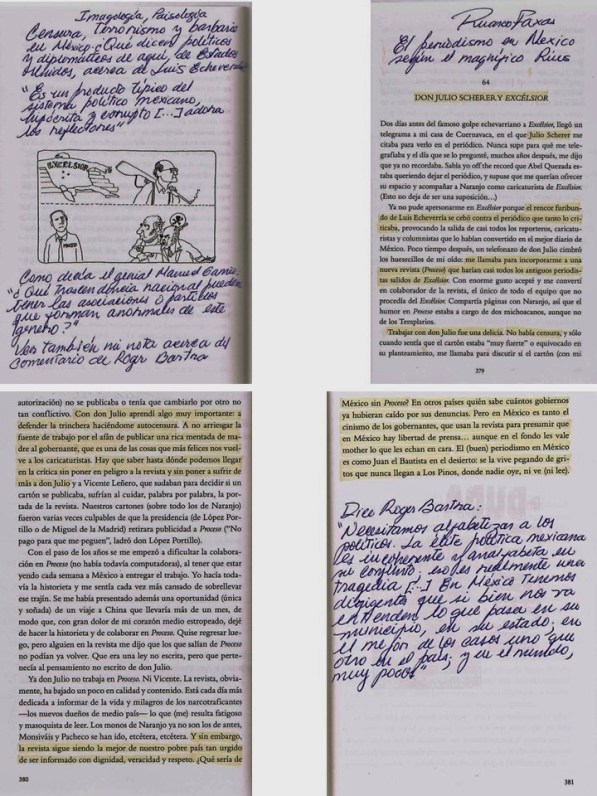 Imagología, Paisología
Censura, Terrorismo y barbarie
en México. ¿Qué dicen políticos
y diplomáticos de aquí, de Estados
Unidos, acerca de Luis Echeverría?
"Es un producto típico del
sistema político mexicano,
hipócrita y corrupto [...] adora
los reflectores"
EXCELSIOR
Como decía el genial Manuel
"¿Que trascendencia nacional pueden
tener las asociaciones o partidos
que forman anormales de este
género?"
Ver también mi nota acerca del
comentario de Roger Bartra
Ruanco Faxas
El periodismo en México
según el magnífico Rius
64
DON JULIO SCHERER Y EXCÉLSIOR
Dos días antes del famoso golpe echeverriano a Excélsior, llegó un
telegrama a mi casa de Cuernavaca, en el que Julio Scherer me
citaba para verlo en el periódico. Nunca supe para qué me tele-
grafiaba y el día que se lo pregunté, muchos años después, me dijo
que ya no recordaba. Sabía yo off the record que Abel Quezada es-
taba queriendo dejar el periódico, y supuse que me querían ofrecer
su espacio y acompañar a Naranjo como caricaturista de Excélsior.
(Esto no deja de ser una suposición...)
Ya no pude apersonarme en Excélsior porque el rencor furibun-
do de Luis Echeverría se cebó contra el periódico que tanto lo cri-
ticaba, provocando la salida de casi todos los reporteros, carica-
turistas y columnistas que lo habían convertido en el mejor diario de
México. Poco tiempo después, un telefonazo de don Julio cimbró
los huesecillos de mi oído: me llamaba para incorporarme a una
nueva revista (Proceso) que harían casi todos los antiguos periodis-
tas salidos de Excélsior. Con enorme gusto acepté y me convertí
en colaborador de la revista, el único de todo el equipo que no
procedía del Excélsior. Compartía páginas con Naranjo, así que el
humor en Proceso estaba a cargo de dos michoacanos, aunque no
de los Templarios.
Trabajar con don Julio fue una delicia. No había censura, y sólo
cuando sentía que el cartón estaba "muy fuerte" o equivocado en
su planteamiento, me llamaba para discutir si el cartón (con mi
379
autorización) no se publicaba o tenía que cambiarlo por otro no
tan conflictivo. Con don Julio aprendí algo muy importante: a
defender la trinchera haciéndome autocensura. A no arriesgar la
fuente de trabajo por el afán de publicar una rica mentada de ma-
dre al gobernante, que es una de las cosas que más felices nos vuel-
ve a los caricaturistas. Hay que saber hasta dónde podemos llegar
en la crítica sin poner en peligro a la revista y sin poner a sufrir de
más a don Julio y a Vicente Leñero, que sudaban para decidir si un
cartón se publicaba, sufrían al cuidar, palabra por palabra, la por-
tada de la revista. Nuestros cartones (sobre todo los de Naranjo)
fueron varias veces culpables de que la presidencia (de López Por-
tillo o de Miguel de la Madrid) retirara publicidad a Proceso ("No
pago para que me peguen", ladró don López Portillo).
Con el paso de los años se me empezó a dificultar la colabora-
ción en Proceso (no había todavía computadoras), al tener que estar
yendo cada semana a México a entregar el trabajo. Yo hacía toda-
vía la historieta y me sentía cada vez más cansado de sobrellevar
ese trajín. Se me había presentado además una oportunidad (única
y soñada) de un viaje a China que llevaría más de un mes, de
modo que, con gran dolor de mi corazón medio estropeado, dejé
de hacer la historieta y de colaborar en Proceso. Quise regresar lue-
go, pero alguien en la revista me dijo que los que salían de Proceso
no podían ya volver. Que era una ley no escrita, pero que perte-
necía al pensamiento no escrito de don Julio.
Ya don Julio no trabaja en Proceso. Ni Vicente. La revista, obvia-
mente, ha bajado un poco en calidad y contenido. Está cada día más
dedicada a informar de la vida y milagros de los narcotraficantes
—los nuevos dueños de medio país— lo que (me) resulta fatigoso
y masoquista de leer. Los monos de Naranjo ya no son los de antes,
Monsiváis y Pacheco se han ido, etcétera, etcétera. Y sin embargo,
la revista sigue siendo la mejor de nuestro pobre país tan urgido
de ser informado con dignidad, veracidad y respeto. ¿Qué sería de
380
México sin Proceso? En otros países quién sabe cuántos gobiernos
ya hubieran caído por sus denuncias. Pero en México es tanto el
cinismo de los gobernantes, que usan la revista para presumir que
en México hay libertad de prensa... aunque en el fondo les vale
mother lo que les echan en cara. El (buen) periodismo en México
es como Juan el Bautista en el desierto: se la vive pegando de gri-
tos que nunca llegan a Los Pinos, donde nadie oye, ni ve (ni lee).
Dice Roger Bartra:
"Necesitamos alfabetizar a los
políticos. La élite política mexicana
es incoherente y analfabeta en
su conjunto. Eso es realmente una
tragedia [...] En México tenemos
dirigentes que si bien nos va
entienden lo que pasa en su
municipio, en su estado; en
el mejor de los casos uno que
otro en el país; y en el mundo,
muy pocos"
381